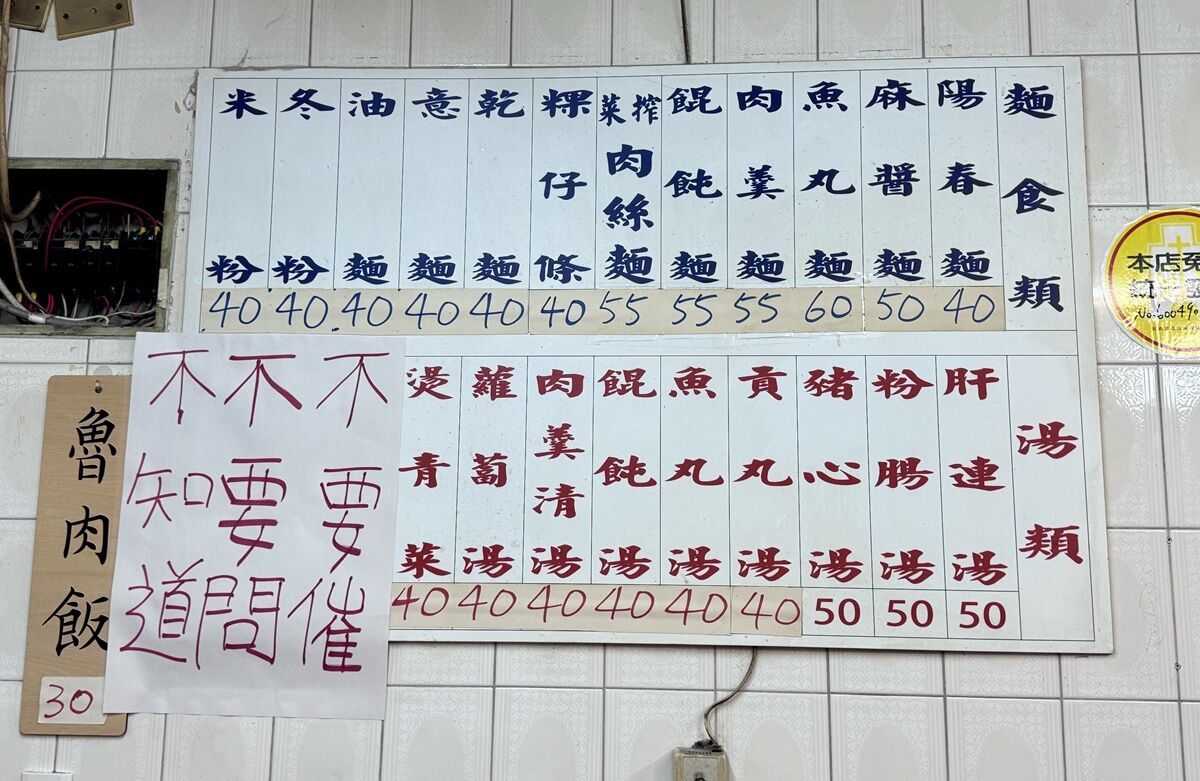 麵食類
陽春麵 40
麻醬麵 50
魚丸麵 60
肉羹麵 55
餛飩麵 55
榨菜肉絲麵 55
粿仔條 40
乾麵 40
意麵 40
油麵 40
冬粉 40
米粉 40
湯類
肝連湯 50
粉腸湯 50
豬心湯 50
貢丸湯 40
魚丸湯 40
餛飩湯 40
肉羹清湯 40
蘿蔔湯 40
燙青菜 40
不要催
不要問
不知道
魯肉飯
30
本店免